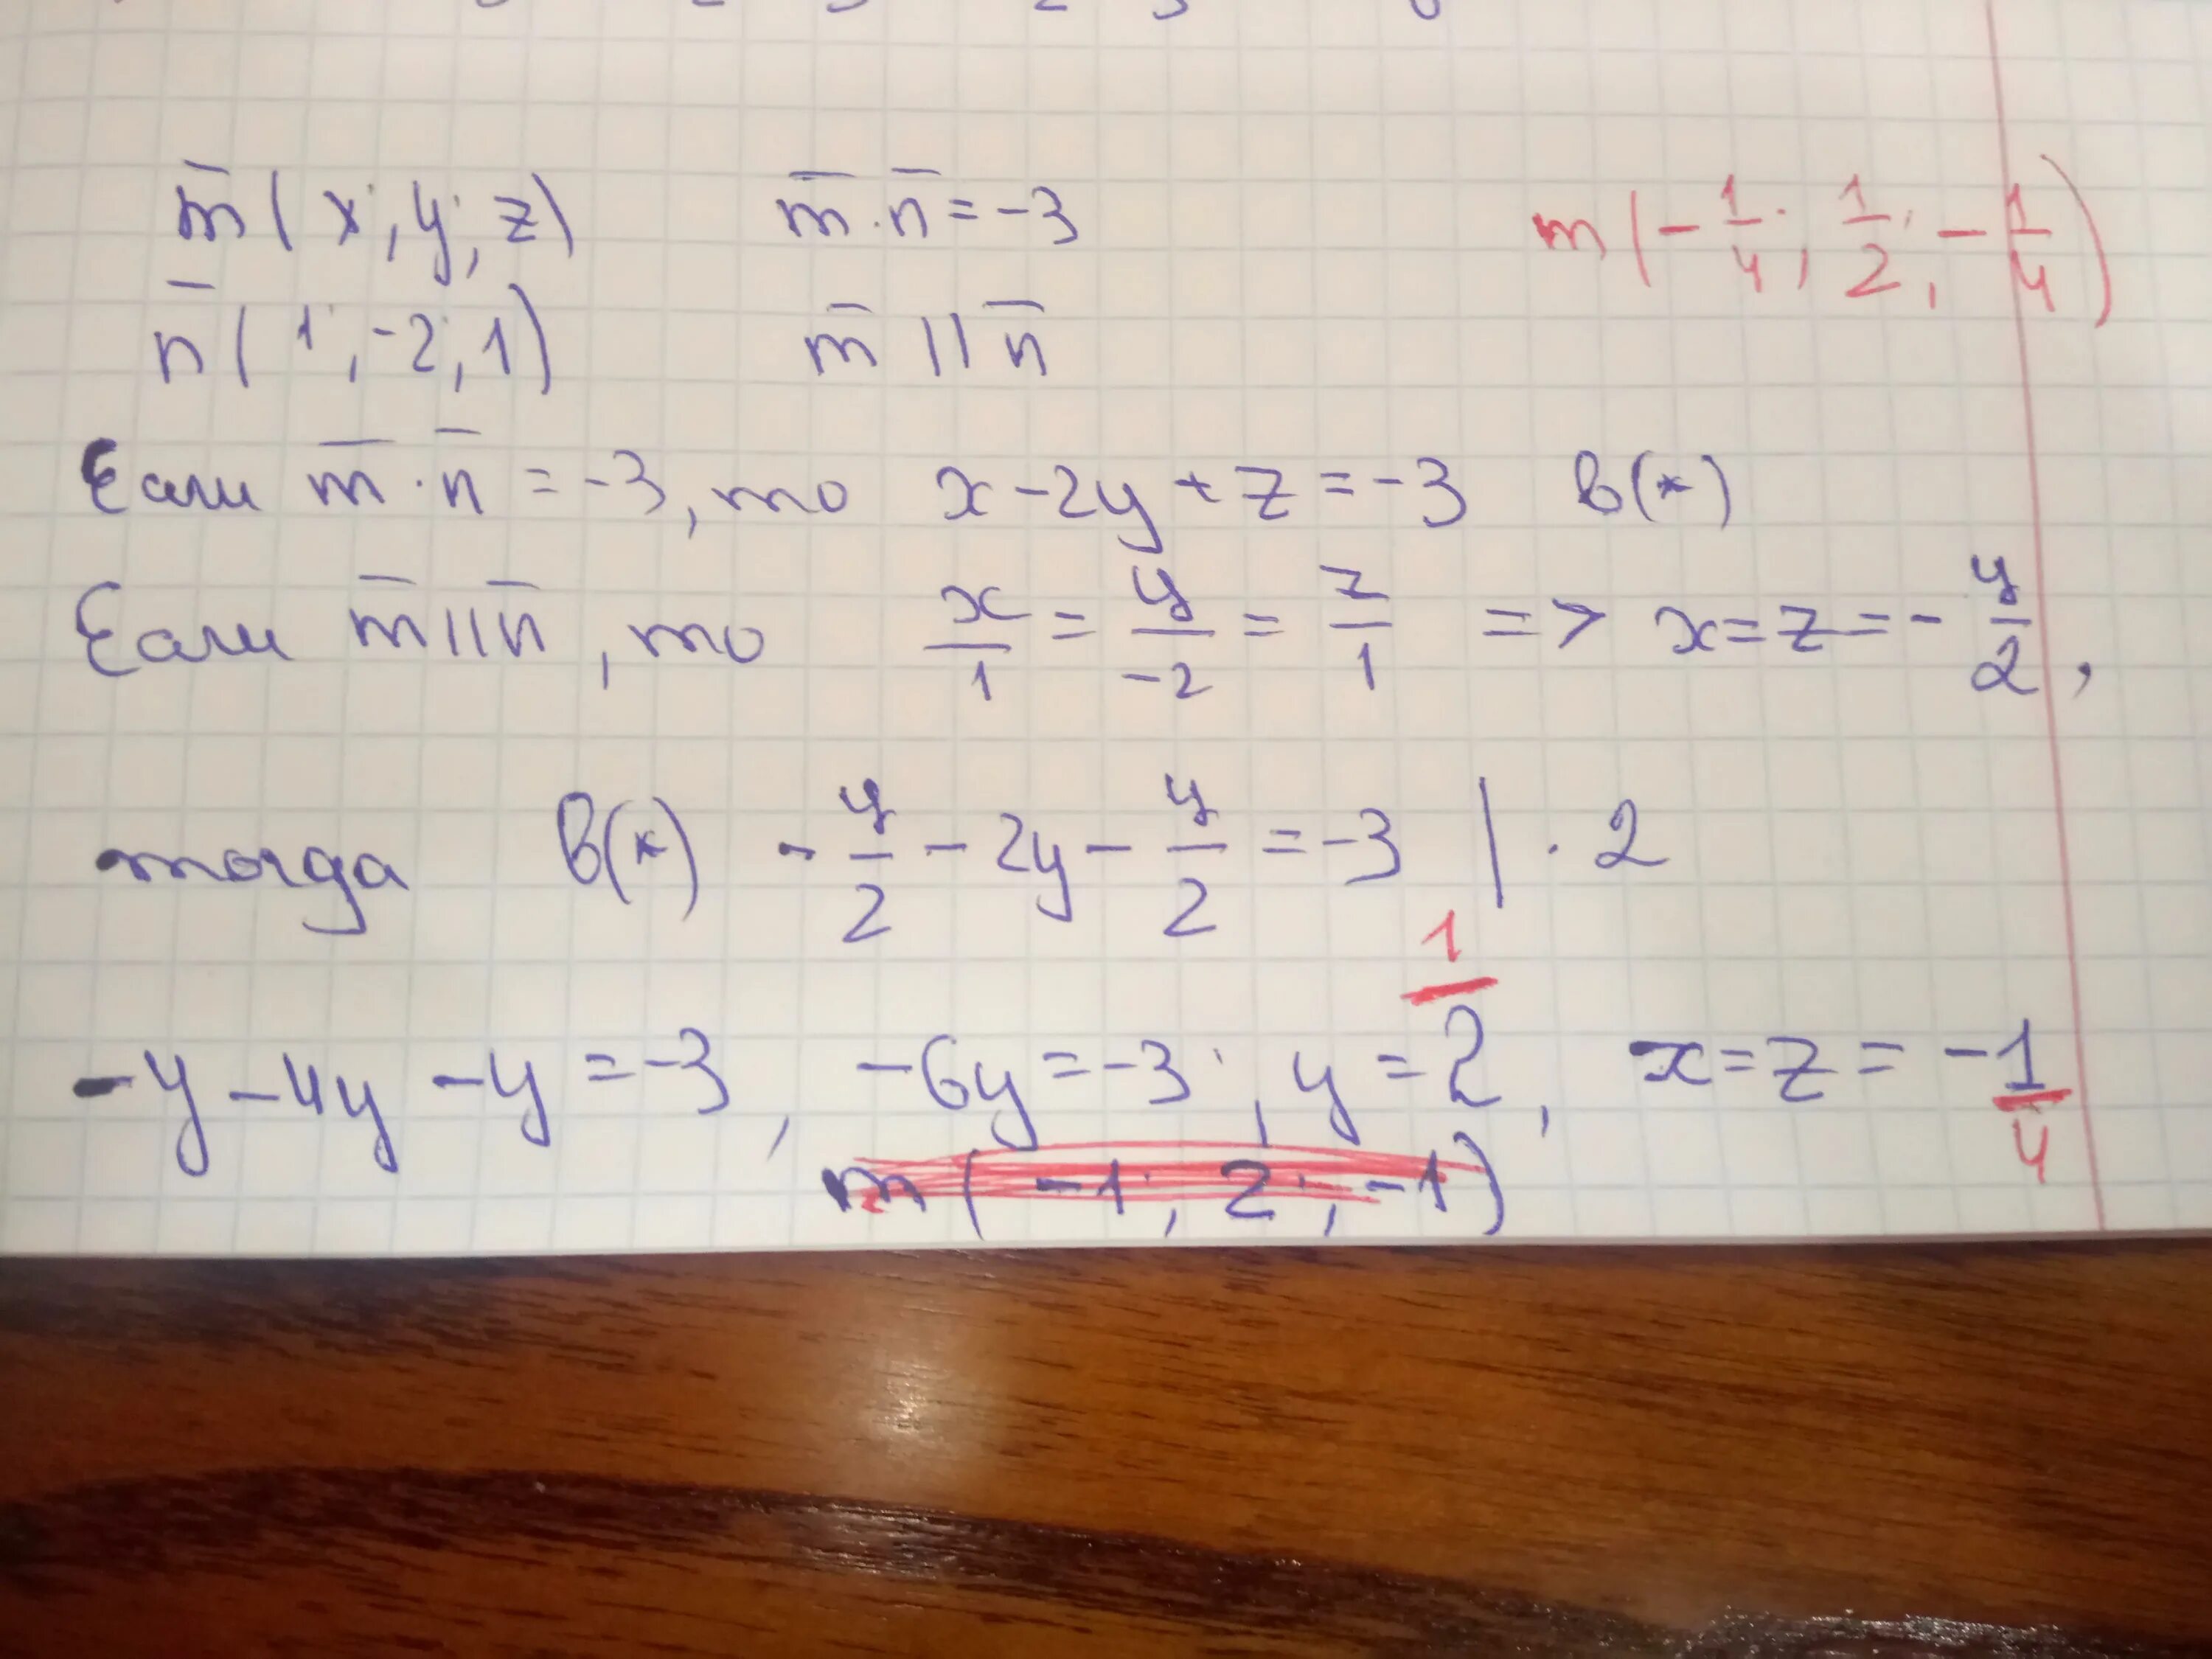 m̄(x; y; z)    m̄·n̄ = -3    m(-1/4; 1/2; -1/4)
n̄(1; -2; 1)    m̄ || n̄
Если m̄·n̄ = -3, то x - 2y + z = -3 в(*)
Если m̄ || n̄, то x/1 = y/-2 = z/1 => x = z = -y/2,
тогда в(*) -y/2 - 2y - y/2 = -3 | · 2
-y - 4y - y = -3, -6y = -3; y = 1/2, x = z = -1/4
m(-1; 2; -1)